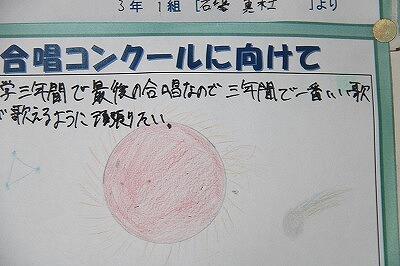 3年1組 [　　　]より
合唱コンクールに向けて
学三年間で最後の合唱なので三年間で一番いい歌
で歌えるように頑張りたい。